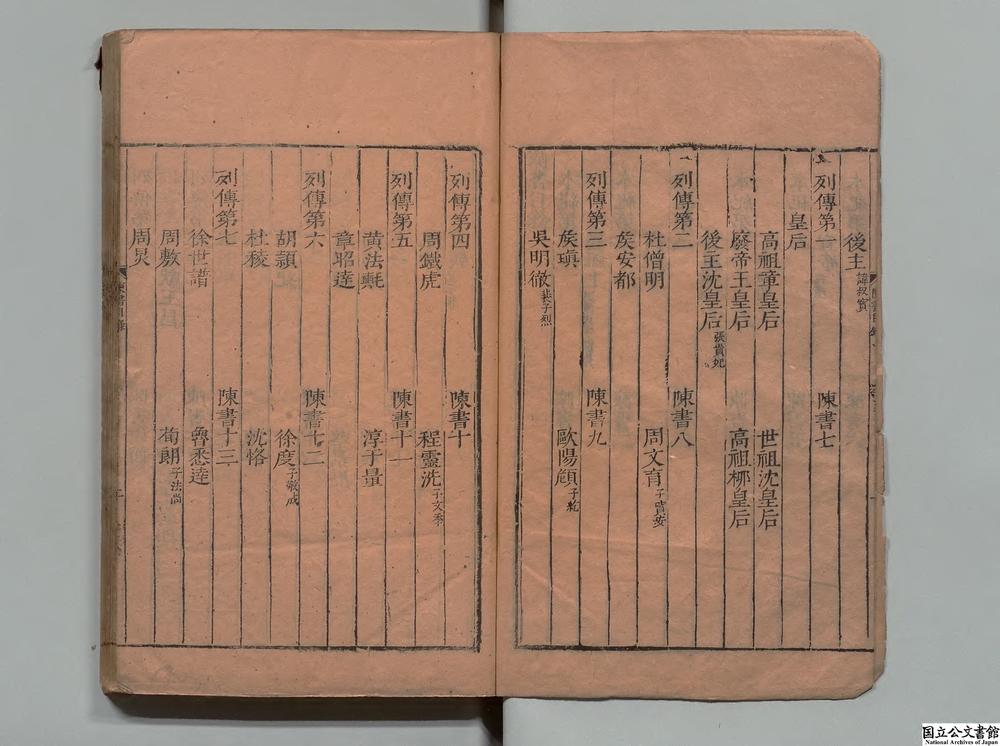 後主 諱叔寶
列傳第一 陳書七
皇后
高祖章皇后 世祖沈皇后
廢帝王皇后 高祖柳皇后
後主沈皇后 張貴妃
列傳第二 陳書八
杜僧明 周文育 子寶安
侯安都
列傳第三 陳書九
侯瑱 歐陽頠 子紇
吳明徹 裴子烈
列傳第四 陳書十
周鐵虎 程靈洗 子文季
列傳第五 陳書十一
黄法𣰰 淳于量
章昭達
列傳第六 陳書十二
胡頴 徐度 子敬成
杜稜 沈恪
列傳第七 陳書十三
徐世譜 魯悉達
周敷 荀朗 子法尚
周炅
国立公文書館
National Archives of Japan